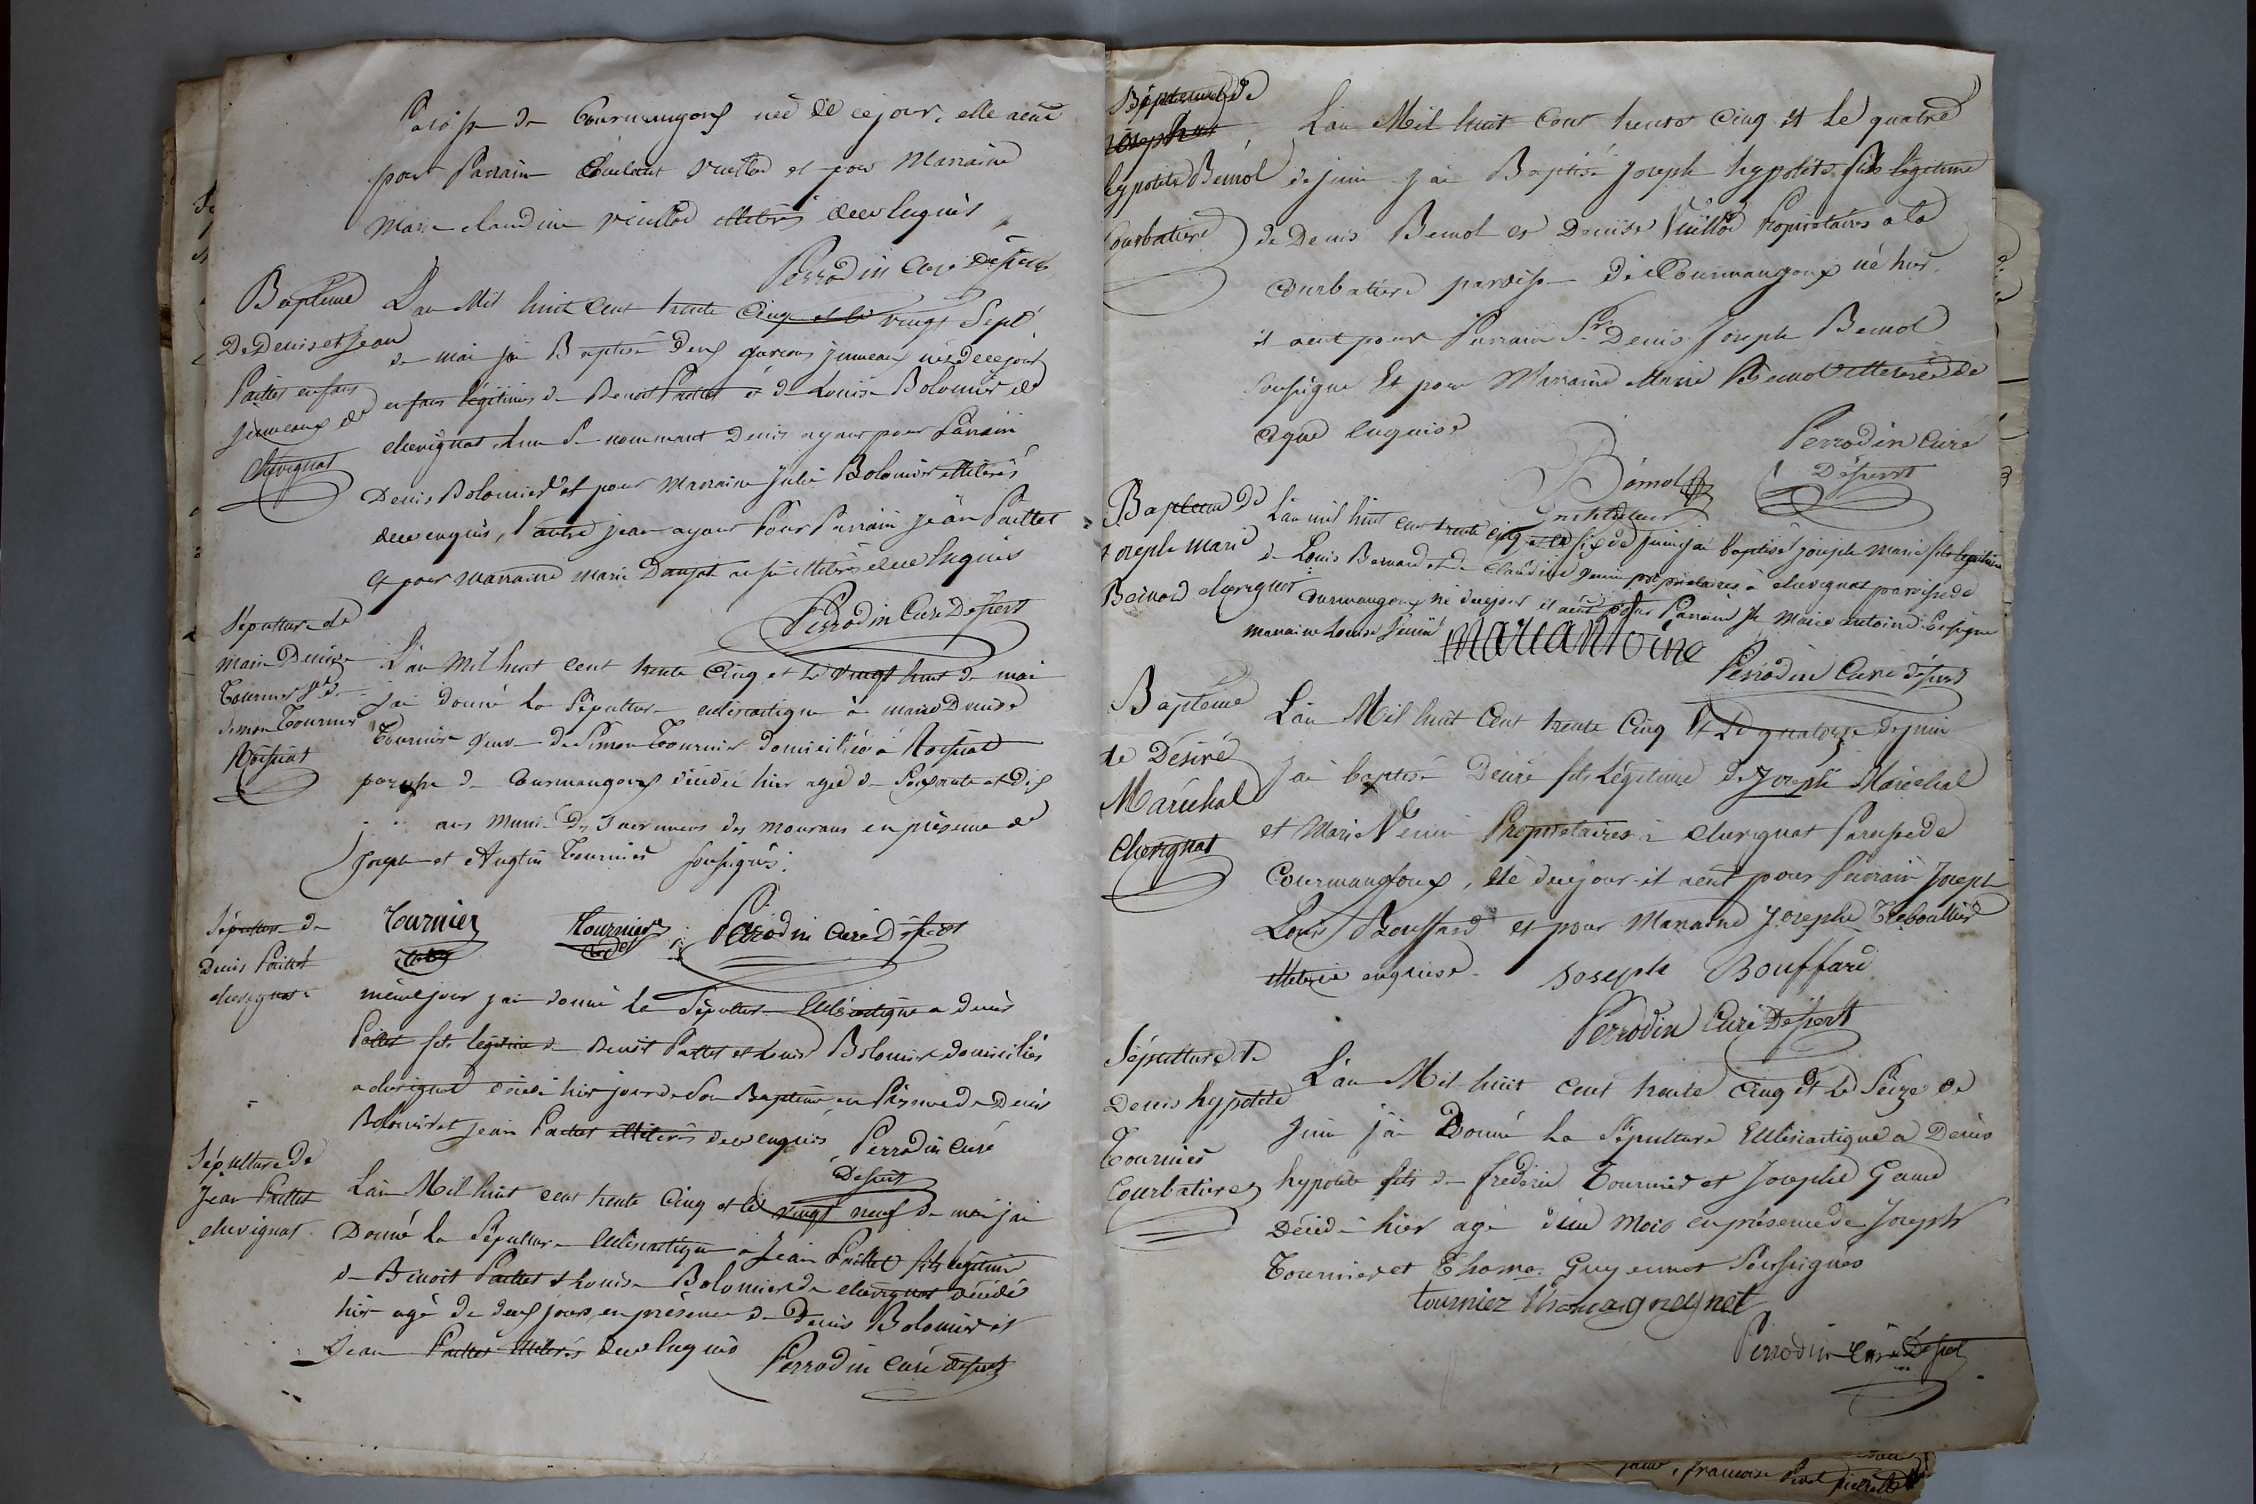 de Courmangoux née de ce jour, elle a eut
pour Parrain Vuillod et pour Marraine
Marie claudine vuillod illiterés de ce Enquis
Perrodin Curé Desservt
Baptême
De Denis et Jean
Paillet enfans
jumeaux de
chevignat
L'an Mil huit Cent trente Cinq et le vingt Sept
de mai j'ai Baptisé deux garcons jumeaux nés de ce jour
enfans légitimes de Benoit Paillet et de Louise Bolomier de
chevignat l'un Se nommant Denis ayant pour Parrain
Denis Bolomier et pour Marraine Julie Bolomier illiterés
de ce enquis, l'autre jean ayant Pour Parrain jean Paillet
et pour marraine marie illiterés de ce Enquis
Perrodin Curé Desservt
Sépulture de
marie Denise
Tournier
Simon Tournier
Roissiat
L'an Mil huit cent trente Cinq et le vingt huit de mai
j'ai donné la Sépulture eclésiastique à marie Denise
Tournier veuve de Simon Tournier domiciliée à Roissiat
paroisse de Courmangoux décédée hier agée de Soixante et dix
ans munie des Sacremens des mourans en présence de
Joseph et Augtin Tournier Soussignés.
Tournier Tournier Perrodin Curé Desservt
Sépulture de
Denis Paillet
chevignat
même jour j'ai donné la Sépulture Eclésiastique a denis
Paillet fils légitime de Benoit Paillet et Louise Bolomier domiciliés
a chevignat décédé hier jour de Son Baptême en Présence de Denis
Bolomier et jean Paillet illiterés de ce enquis Perrodin Curé
Desservt
Sépulture de
Jean Paillet
chevignat
L'an Mil huit cent trente Cinq et le vingt neuf de mai j'ai
Donné la Sépulture Eclésiastique à Jean Paillet fils légitime
de Benoit Paillet et Louise Bolomier de chevignat décédé
hier agé de deux jours, en présence de Denis Bolomier et
Jean Paillet illiterés de ce Enquis Perrodin curé desservt
Baptême de
Joseph
hypolite Bémol
Courbatière
L'an Mil huit Cent trente Cinq et Le quatre
de juin j'ai Baptisé Joseph hypolite fils légitime
de Denis Bemol et Denise Vuillod Propriétaires a la
Courbatière paroisse de Courmangoux né hier.
il a eut pour Parrain Sr Denis Joseph Bemol
Soussigné Et pour Marraine Marie Bemol illeterée de
ce que Enquise
Bémol
Instituteur
Perrodin Curé
Desservt
Baptême de
Joseph Marie
Bernard chevignat
L'an mil huit cent trente cinq et le six de juin j'ai baptisé joseph marie fils légitime
de Louis Bernard et de Claudine propriétaires à chevignat paroisse de
Courmangoux né de ce jour il a eut pour Parrain Marie antoine Soussigné
marraine Louise
Mariantoine
Perrodin Curé desservt
Baptême
de Désiré
Maréchal
Chevignat
L'an Mil huit Cent trente Cinq Et Le quatorze de juin
j'ai baptisé Désiré fils Légitime de Joseph Maréchal
et Marie Propriétaires à chevignat Paroisse de
Courmangoux, né de ce jour il a eut pour Parrain Joseph
Louis Bouffard et pour Marraine Josephe
illeterée enquise. Joseph Bouffard
Perrodin Curé Desservt
Sépulture de
Denis hypolite
Tournier
Courbatière
L'an Mil huit cent trente Cinq et Le Seize de
Juin j'ai Donné La Sépulture Eclésiastique a Denis
hypolite fils de frédéric Tournier et Josephe
Décédé hier agé d'un Mois en présence de Joseph
Tournier et Thomas Guyennet Soussignés
tournier thomas gueynet
Perrodin Curé Desservt